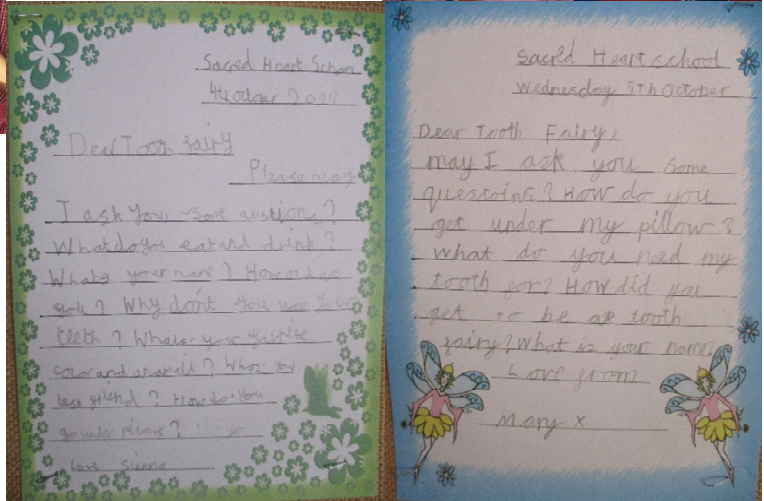 Sacred Heart School
4th October
Dear Tooth fairy
Please may
I ask you some questions?
What do you eat and drink?
Whats your name? How old are
you? Why dont you use your
teeth? Whats your favrite
color and
best friend? How do you
go under
Love Sienna
Sacred Heart school
Wednesday 5th October
Dear Tooth Fairy,
may I ask you some
questoins? How do you
get under my pillow?
What do you need my
tooth for? How did you
get to be a tooth
fairy? What is your name?
Love from
Mary x